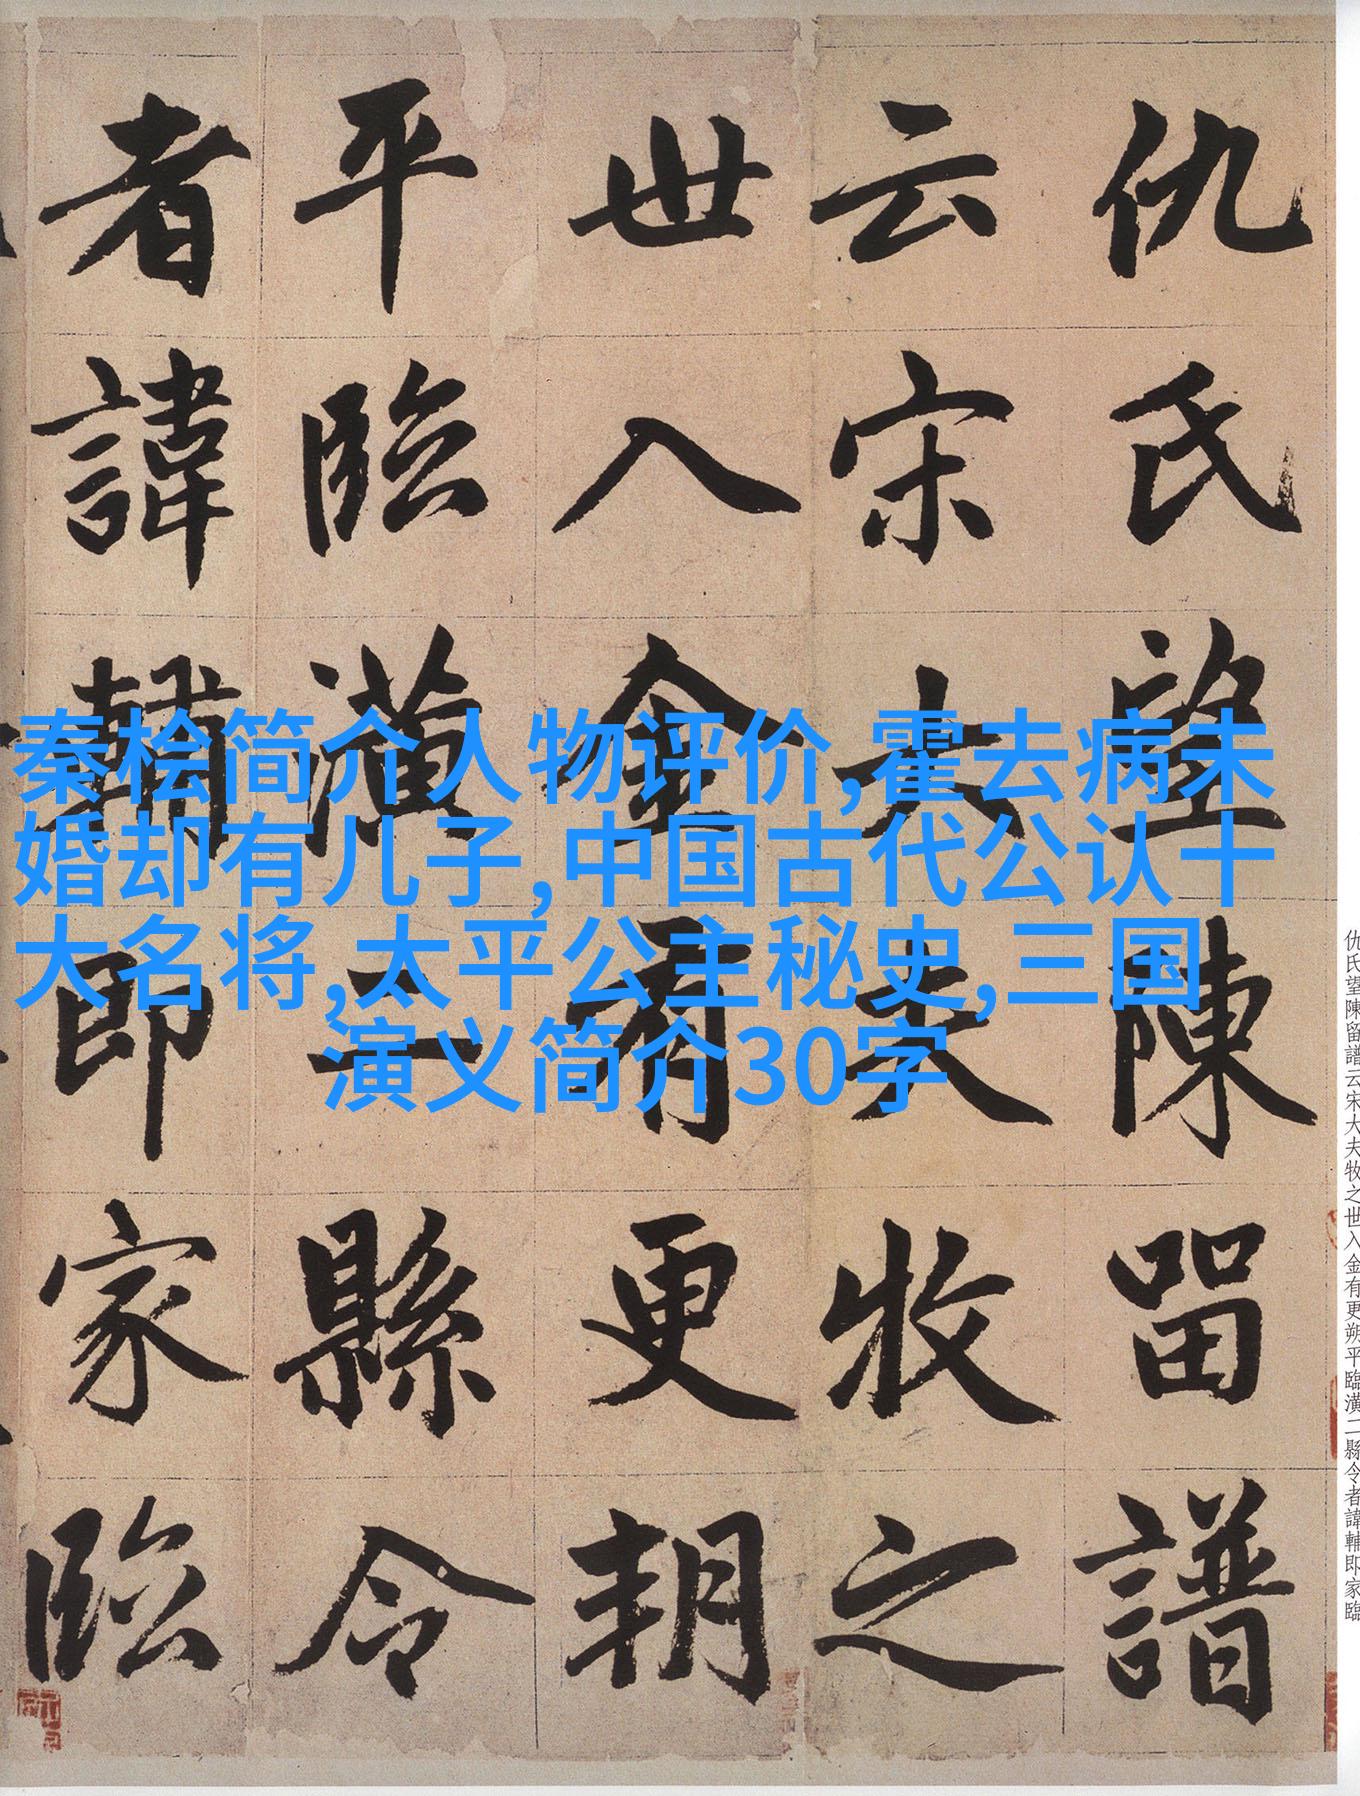 仇氏望陳留譜
云宋大夫牧之
世入金有更朔
平臨潢二縣令
者諱輔即家臨
秦桧简介人物评价,霍去病未
婚却有儿子,中国古代公认十
大名将,太平公主秘史,三国
演义简介30字
仇氏望陳留譜云宋大夫牧之世入金有更朔平臨潢二縣令者諱輔即家臨